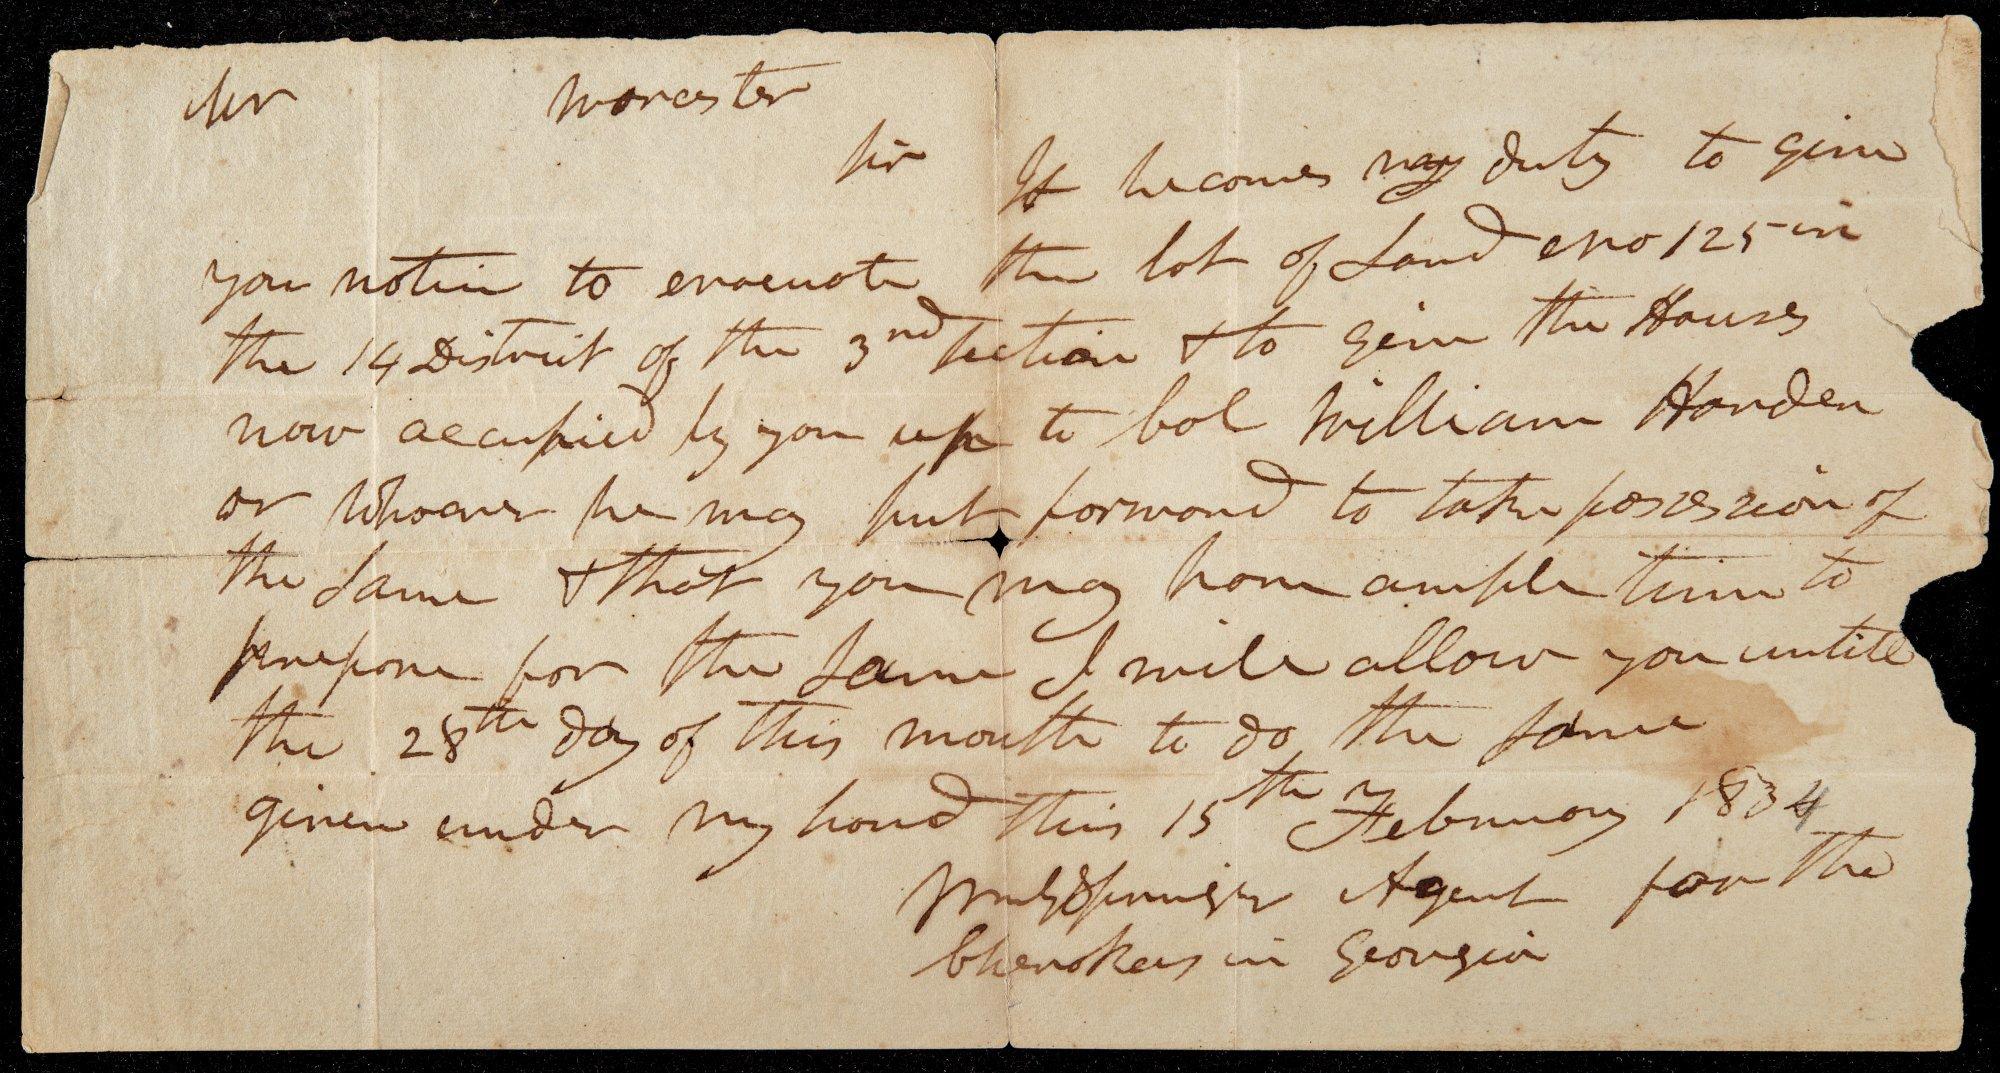 Mr Worcester
Sir It becomes my duty to give
you notice to evacuate the lot of Land No 125 in
the 14 District of the 3nd Section & to give the Houses
now occupied by you up to Col William Harden
or Whoever he may put forward to take possession of
the Same & that you may have ample time to
prepare for the Same I will allow you untill
the 28th day of this month to do the Same
given under my hand this 15th February 1834
Wm G Springer Agent for the
Cherokees in Georgia